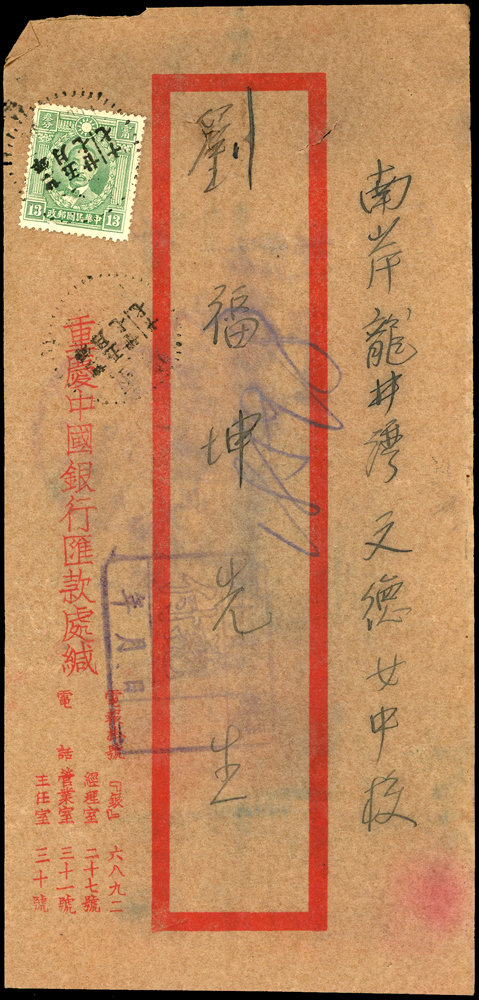 南岸龍井灣文德女中校
劉福坤先生
重慶中國銀行匯款處緘
電報掛號『銀』六八九二
電話
經理室二十七號
營業室三十一號
主任室三十號
13
中華民國郵政
13
年月日